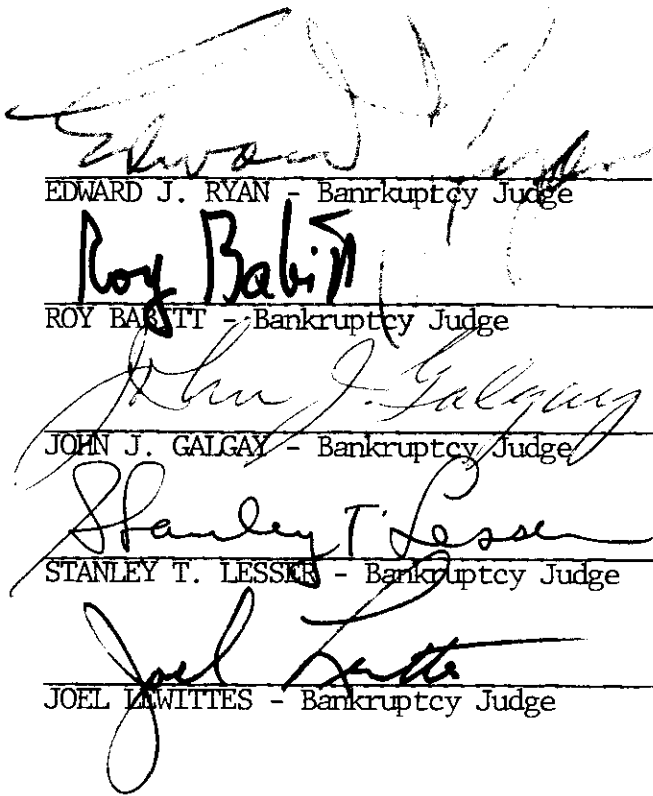 Edward J. Ryan
EDWARD J. RYAN - Banrkuptcy Judge
Roy Babitt
ROY BABITT - Bankruptcy Judge
John J. Galgay
JOHN J. GALGAY - Bankruptcy Judge
Stanley T. Lesser
STANLEY T. LESSER - Bankruptcy Judge
Joel
JOEL LEWITTES - Bankruptcy Judge